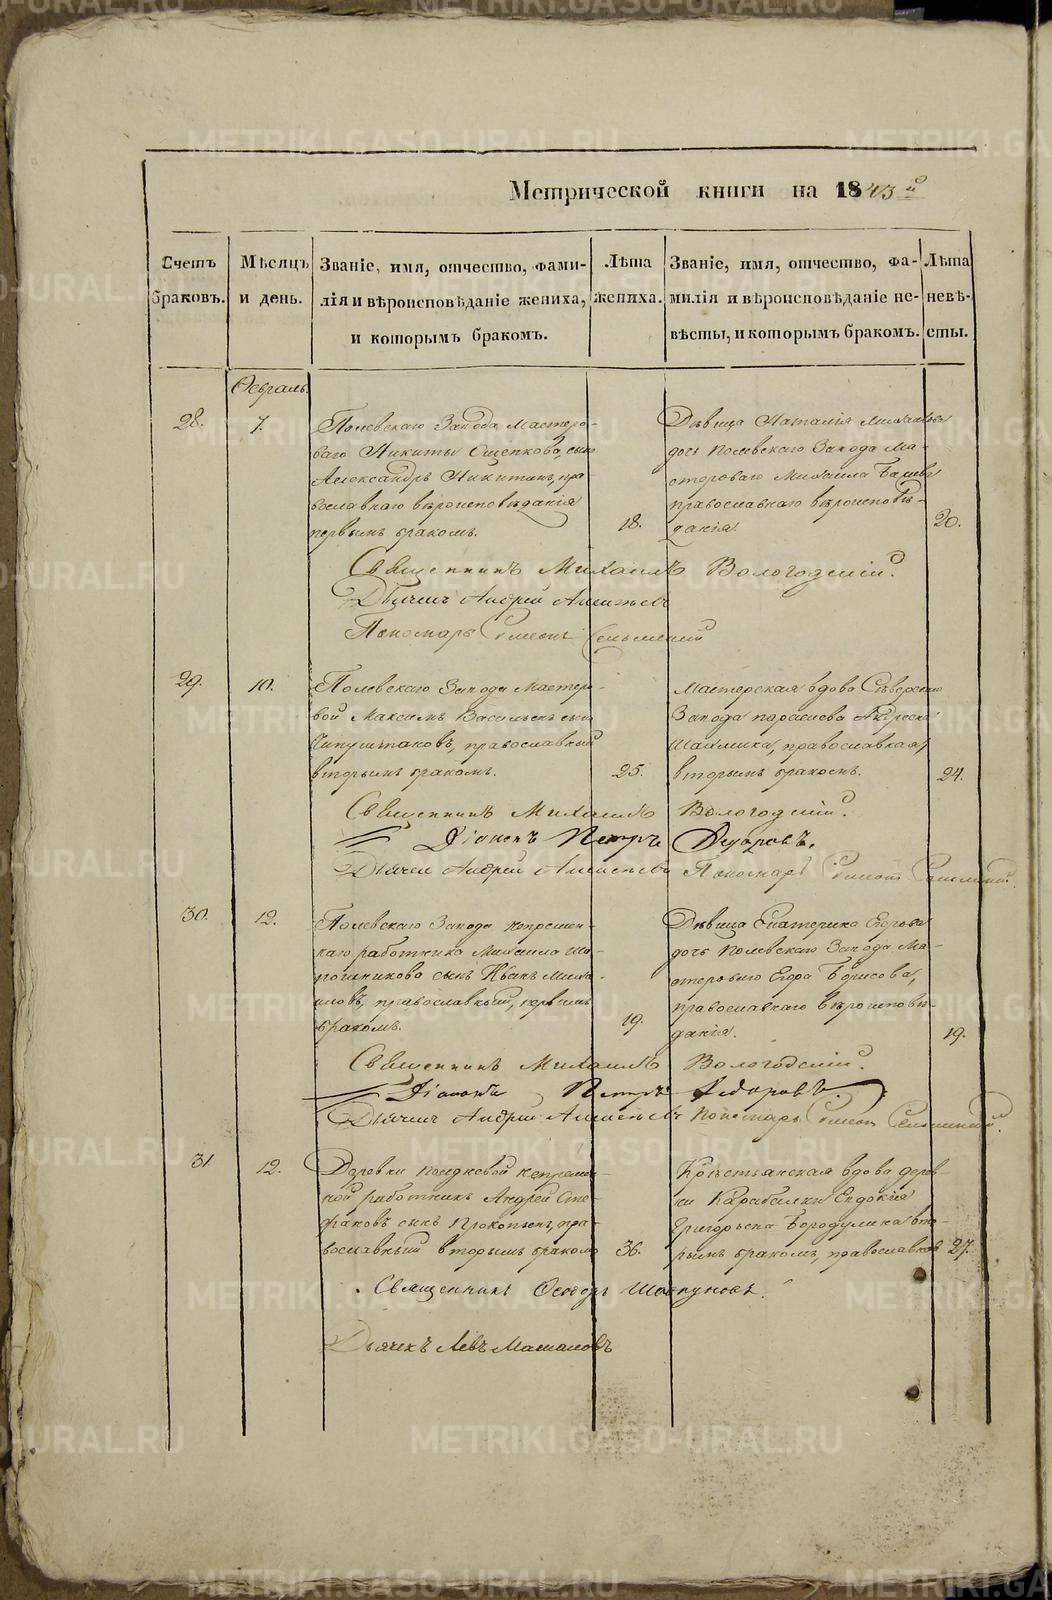 Метрической книги на 1843й
Счетъ браковъ.
Мѣсяцъ и день.
Званіе, имя, отчество, фами-
лія и вѣроисповѣданіе жениха,
и которымъ бракомъ.
Лѣта жениха.
Званіе, имя, отчество, фа-
милія и вѣроисповѣданіе не-
вѣсты, и которымъ бракомъ.
Лѣта невѣ-
сты.
Февраль.
28.
7.
Полевскаго Завода Мастеро-
ваго Никиты Ощепкова, сынъ
Александръ Никитинъ, пра
вославнаго вѣроисповѣданія
первымъ бракомъ.
18.
Дѣвица Наталія Михайлова
дочь Полевскаго Завода Ма-
стероваго Михаила
православнаго вѣроисповѣ-
данія.
20.
Священникъ Михаилъ Вологодскій.
Дьячекъ Андрей
Пономарь Симеонъ
29.
10.
Полевскаго Завода Мастеро-
вой Максимъ Васильевъ сынъ
православный
вторымъ бракомъ.
25.
Мастерская вдова Сѣверскаго
Завода
православная,
вторымъ бракомъ.
24.
Священникъ Михаилъ Вологодскій.
Діаконъ Петръ Федоровъ.
Дьячекъ Андрей Пономарь Симеонъ
30.
12.
Полевскаго Завода непремен-
наго работника Михаила Ша-
пошникова сынъ Иванъ Миха-
иловъ, православный, первымъ
бракомъ.
19.
Дѣвица Екатерина Егорова
дочь Полевскаго Завода Ма-
стероваго Егора Борисова,
православнаго вѣроисповѣ-
данія.
19.
Священникъ Михаилъ Вологодскій.
Діаконъ Петръ Федоровъ.
Дьячекъ Андрей Пономарь Симеонъ
31.
12.
Деревни непремен-
ной работникъ Андрей Сте-
фановъ сынъ Прокопьевъ, пра-
вославный вторымъ бракомъ
36.
Крестьянская вдова дерев-
ни Евдокія
Григорьева Бородулина вто-
рымъ бракомъ, православной
27.
Священникъ Ѳеодоръ
Дьячекъ Левъ
METRIKI.GASO-URAL.RU